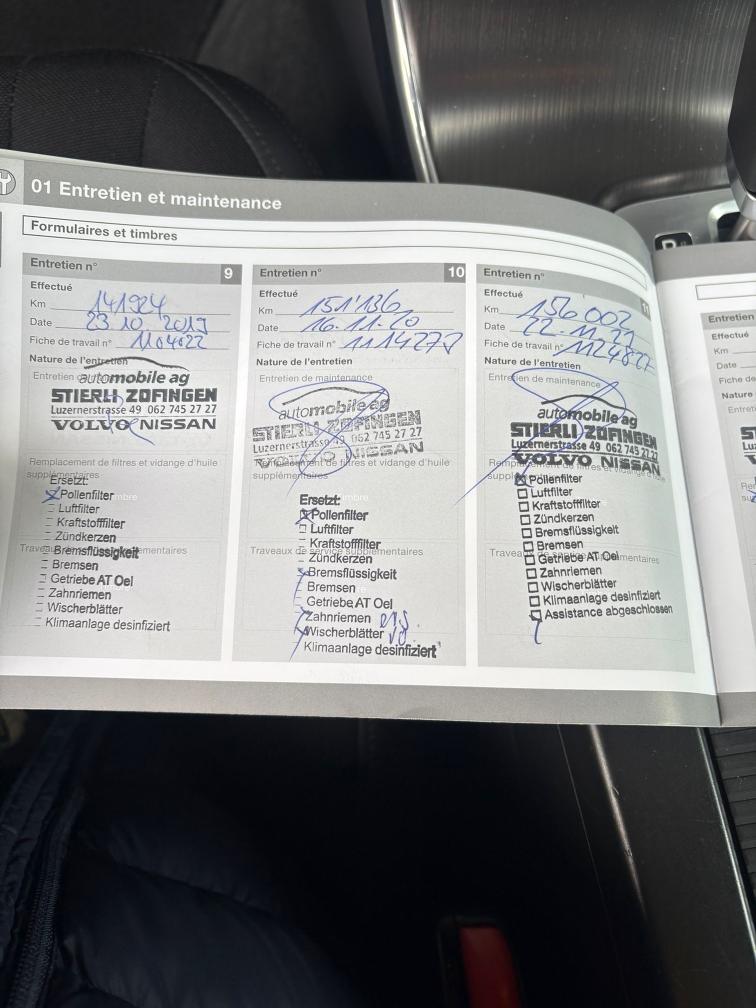 01 Entretien et maintenance
Formulaires et timbres
Entretien n° 9
Effectué
Km 141924
Date 23 10 2019
Fiche de travail n° 1104022
Nature de l'entretien
Entretien
automobile ag
STIERLI ZOFINGEN
Luzernerstrasse 49 062 745 27 27
VOLVO NISSAN
Remplacement de filtres et vidange d'huile
supplémentaires
Ersetzt:
Pollenfilter
Luftfilter
Kraftstofffilter
Zündkerzen
Travaux
Bremsflüssigkeit
Bremsen
Getriebe AT Oel
Zahnriemen
Wischerblätter
Klimaanlage desinfiziert
Entretien n° 10
Effectué
Km 151'136
Date 16.11.20
Fiche de travail n° 1114278
Nature de l'entretien
Entretien de maintenance
automobile ag
STIERLI ZOFINGEN
Luzernerstrasse 49 062 745 27 27
VOLVO NISSAN
Remplacement de filtres et vidange d'huile
supplémentaires
Ersetzt:
Pollenfilter
Luftfilter
Kraftstofffilter
Travaux de service supplémentaires
Zündkerzen
Bremsflüssigkeit
Bremsen
Getriebe AT Oel
Zahnriemen
Wischerblätter
Klimaanlage desinfiziert
Entretien n° 11
Effectué
Km 156 002
Date 22.11.21
Fiche de travail n° 1124827
Nature de l'entretien
Entretien de maintenance
automobile ag
STIERLI ZOFINGEN
Luzernerstrasse 49 062 745 27 27
VOLVO NISSAN
Pollenfilter
Luftfilter
Kraftstofffilter
Zündkerzen
Bremsflüssigkeit
Bremsen
Getriebe AT Oel
Zahnriemen
Wischerblätter
Klimaanlage desinfiziert
Assistance abgeschlossen
Entretien
Effectué
Km
Date
Fiche de
Nature
P